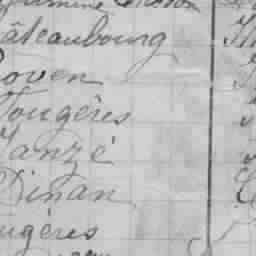 âteaubourg
Rouen
Fougères
Janzé
Dinan
ugères